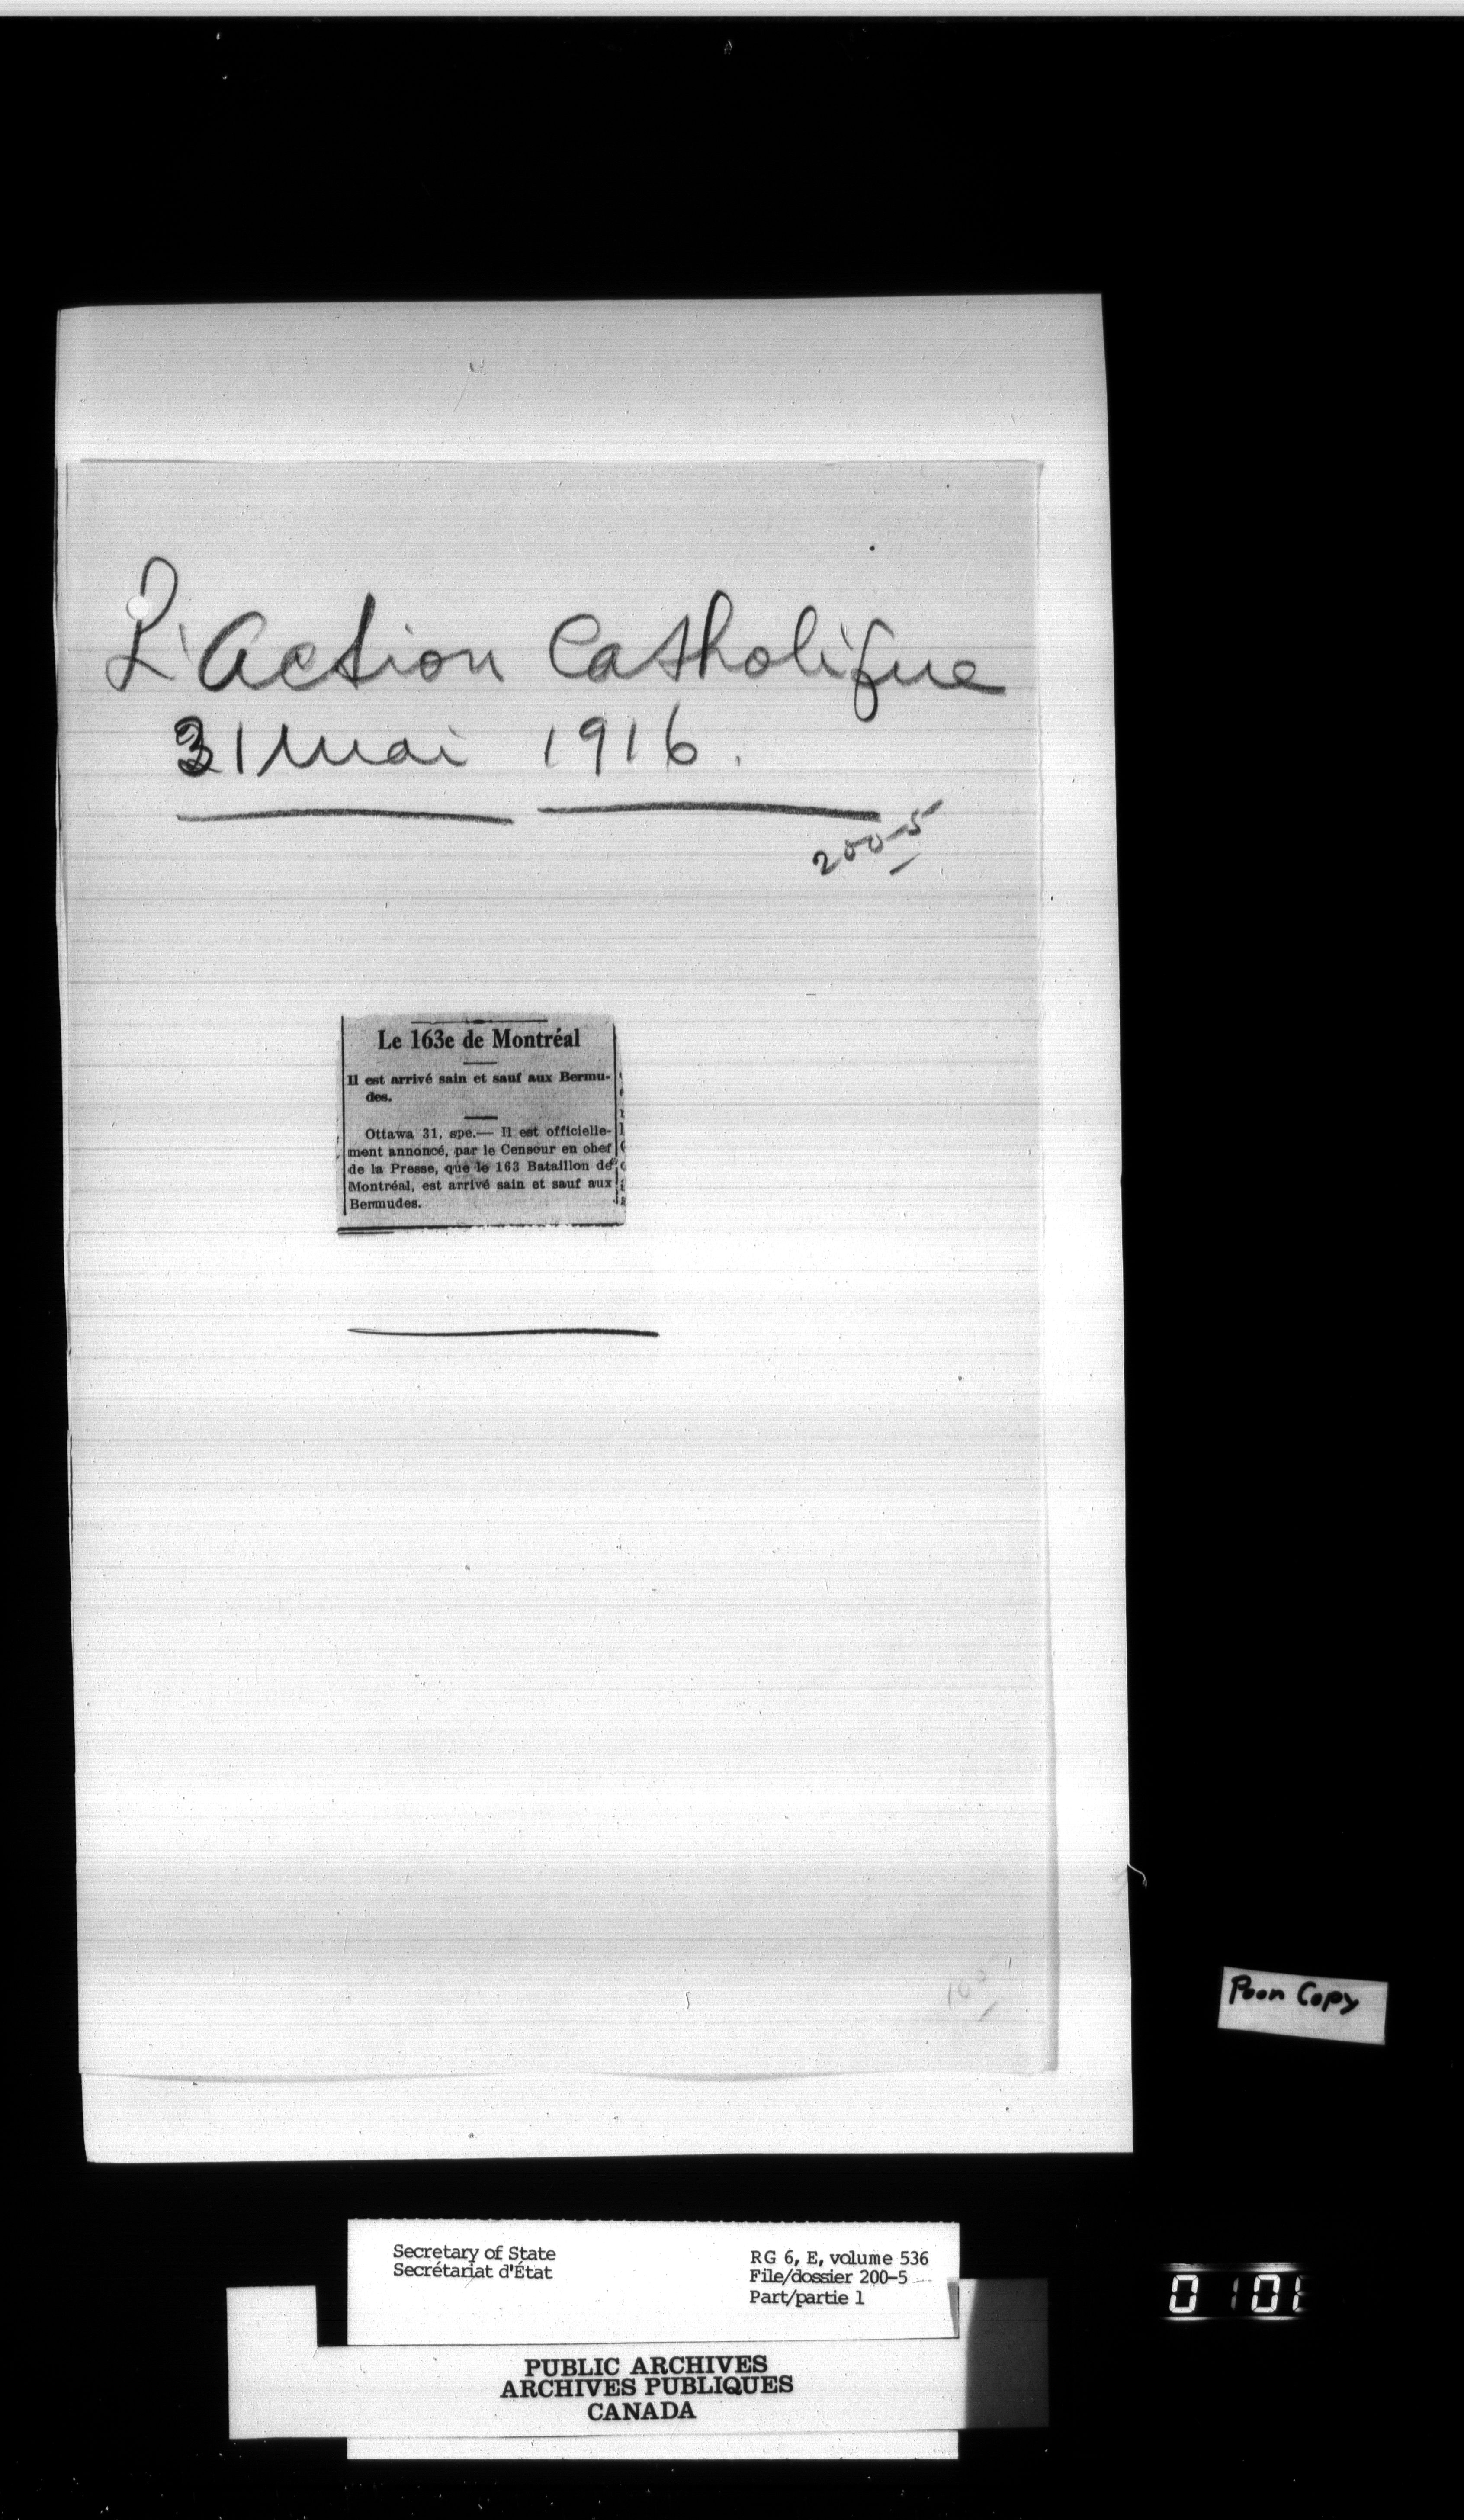 L'Action Catholique
31 Mai 1916.
200-5
Le 163e de Montréal
Il est arrivé sain et sauf aux Bermu-
des.
Ottawa 31, spe.— Il est officielle-
ment annoncé, par le Censour en chef
de la Presse, que le 163 Bataillon de
Montréal, est arrivé sain et sauf aux
Bermudes.
Poon Copy
Secretary of State
Secrétariat d'État
RG 6, E, volume 536
File/dossier 200-5
Part/partie 1
PUBLIC ARCHIVES
ARCHIVES PUBLIQUES
CANADA
0101